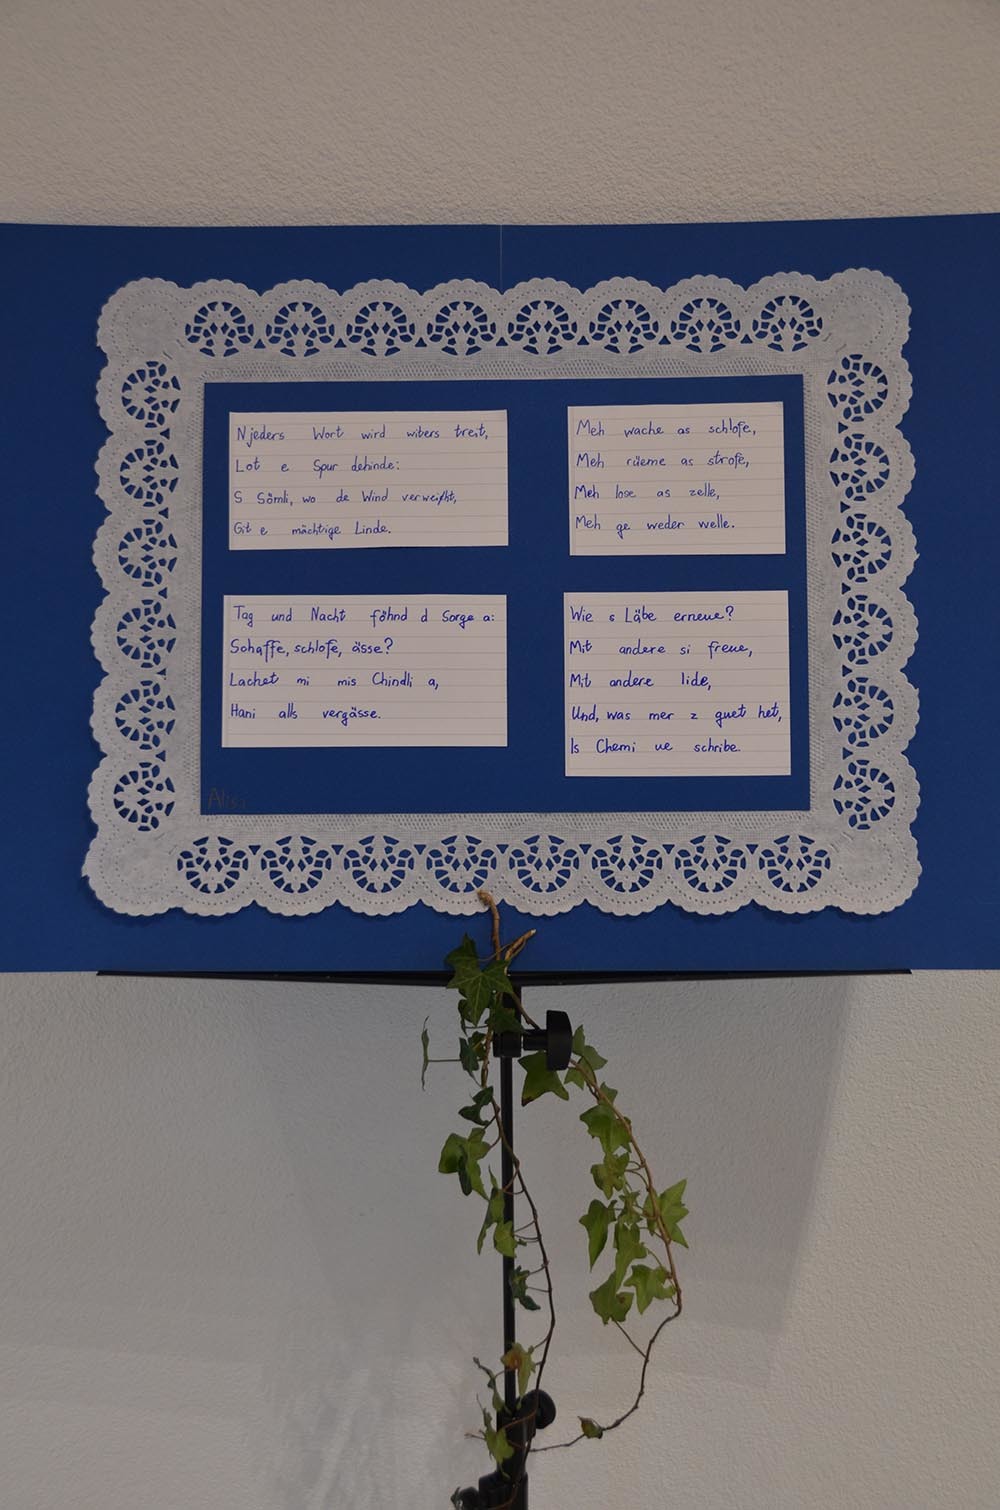 Njeders Wort wird witers treit,
Lot e Spur dehinde:
S Sömli, wo de Wind verweiht,
Git e mächtige Linde.
Meh wache as schlofe,
Meh rüeme as strofe,
Meh lose as zelle,
Meh ge weder welle.
Tag und Nacht föhnd d Sorge a:
Schaffe, schlofe, ässe?
Lachet mi mis Chindli a,
Hani alls vergässe.
Wie s Läbe erneue?
Mit andere si freue,
Mit andere lide,
Und, was mer z guet het,
Is Chemi ue schribe.
Alisa